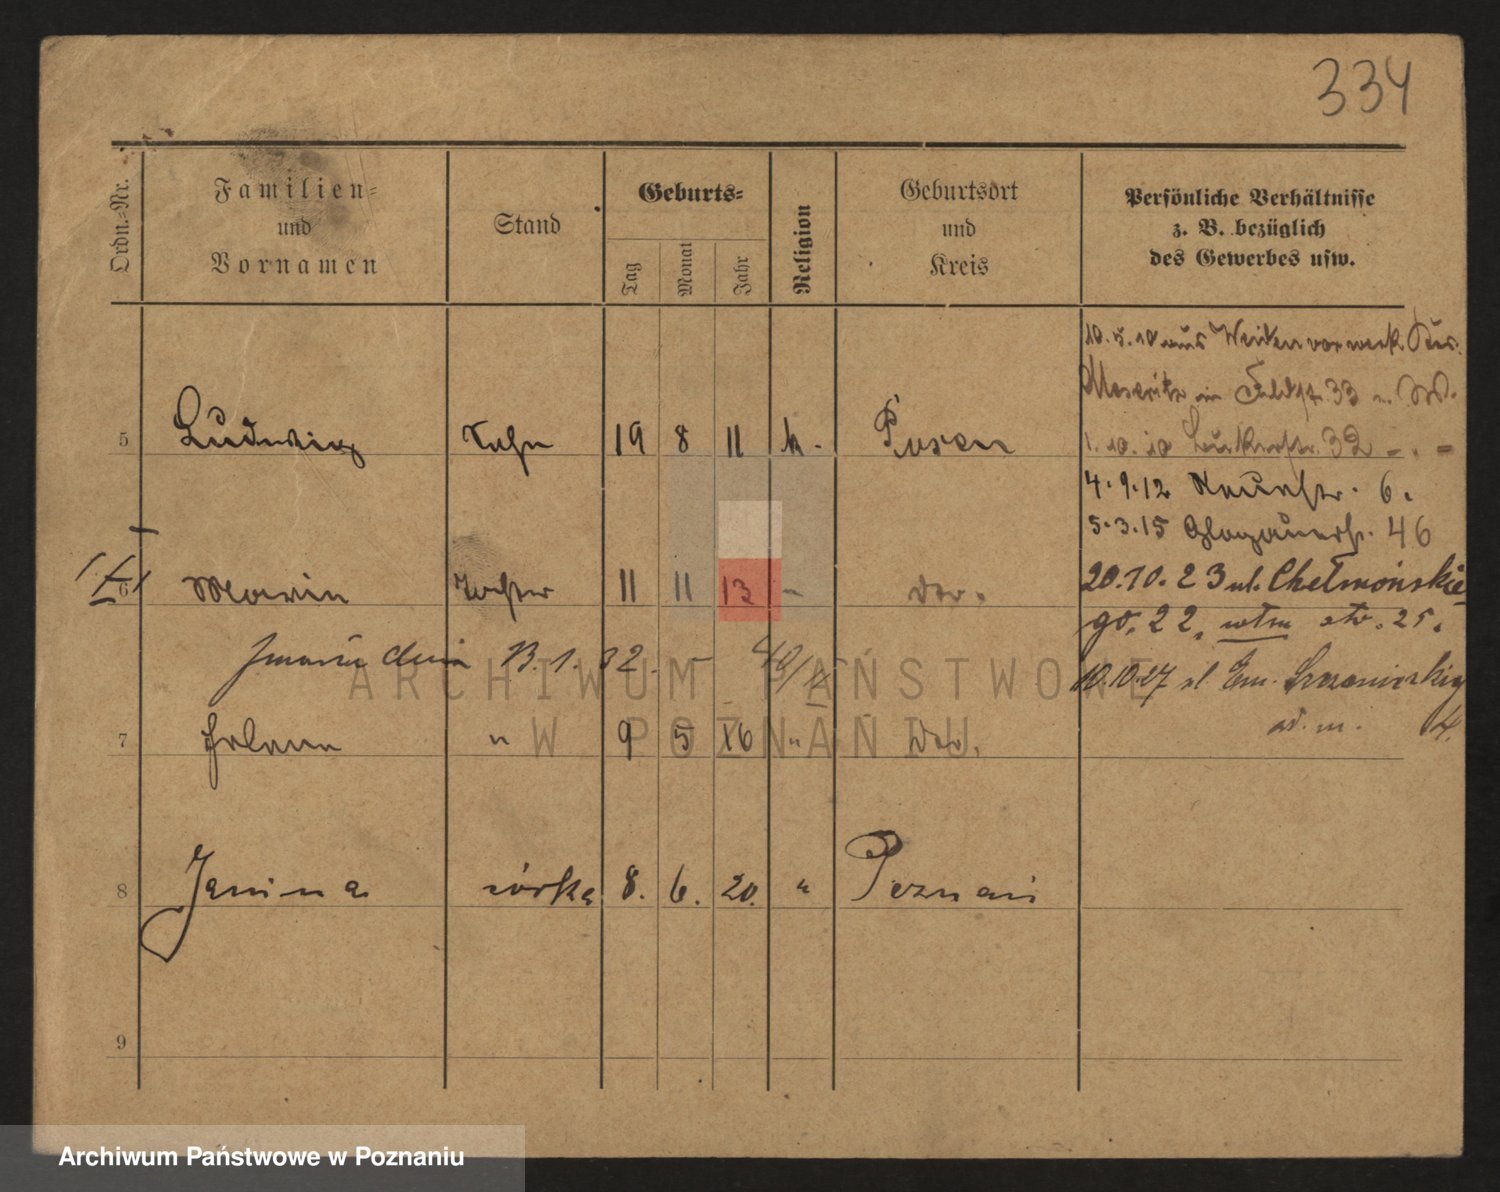 334
Ordn.=Nr.
Familien=
und
Vornamen
Stand
Geburts=
Tag
Monat
Jahr
Religion
Geburtsort
und
Kreis
Persönliche Verhältnisse
z. B. bezüglich
des Gewerbes usw.
10.5.10 aus Weidenvorwerk Krs.
Meseritz in Feldstr. 33
5 Ludwig Sohn 19 8 11 k. Posen
1.10.10 32
4.9.12 Neuestr. 6.
5.3.15 Glogauerstr. 46
6 Maria Tochter 11 11 13 - do.
20.10.23 ul. Chełmońskie
go. 22, wtm 25.
zmarła dnia 13.1.32. -
10.10.27 ul. Em. Sczanieckiej
7 Helene " 9 5 16 " do.
4.
8 Janina córka 8. 6. 20. " Poznań
9
ARCHIWUM PAŃSTWOWE
W POZNANIU
Archiwum Państwowe w Poznaniu